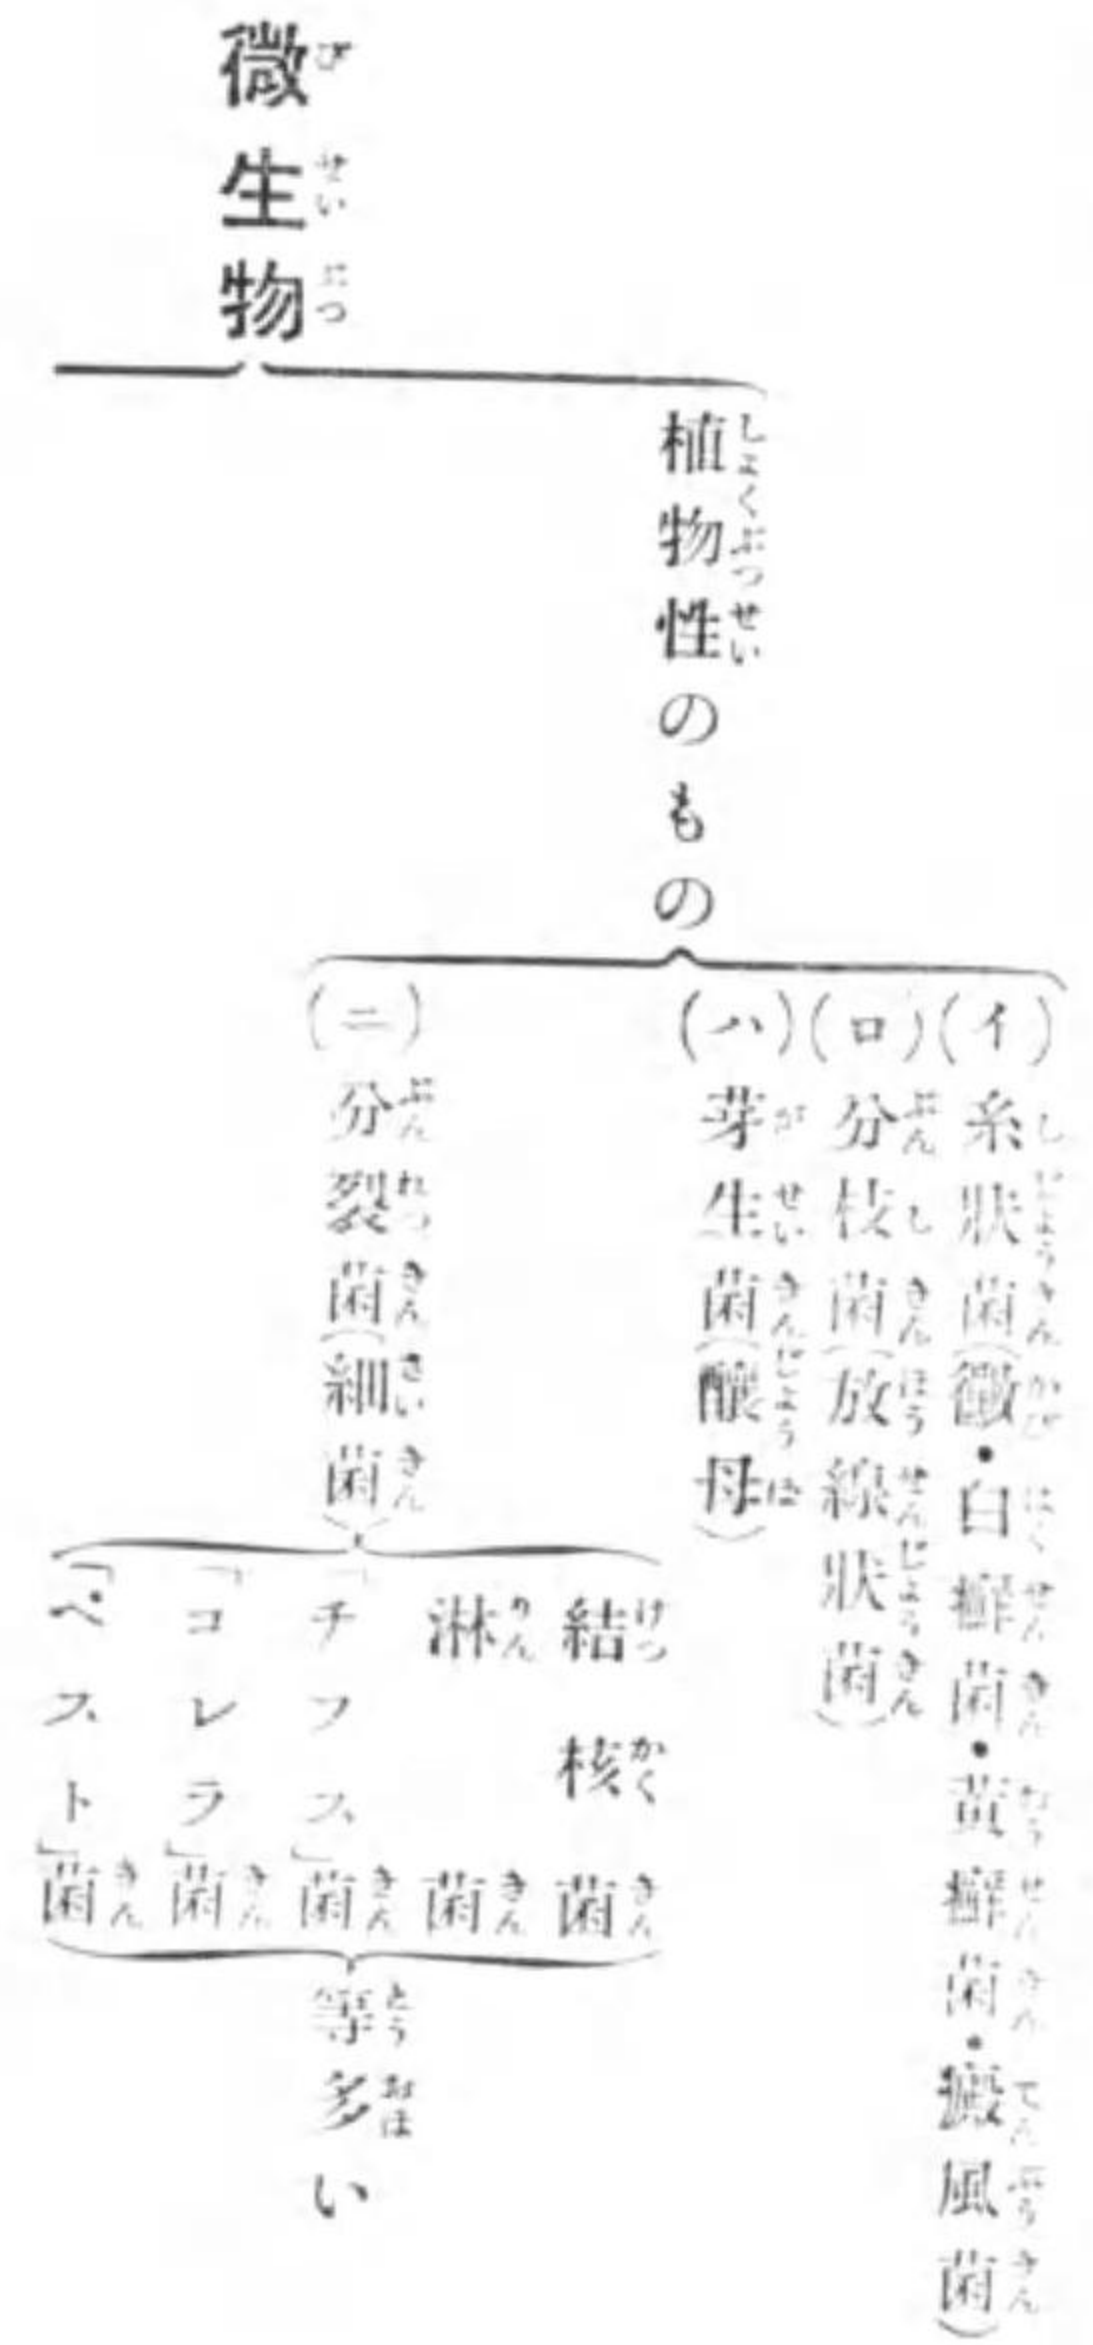 微生物
植物性のもの
(イ)糸狀菌(黴・白癬菌・黃癬菌・癜風菌)
(ロ)分枝菌(放線狀菌)
(ハ)芽生菌(釀母)
(ニ)分裂菌(細菌)
結核菌
淋菌
「チフス」菌
「コレラ」菌
「ペスト」菌
等多い